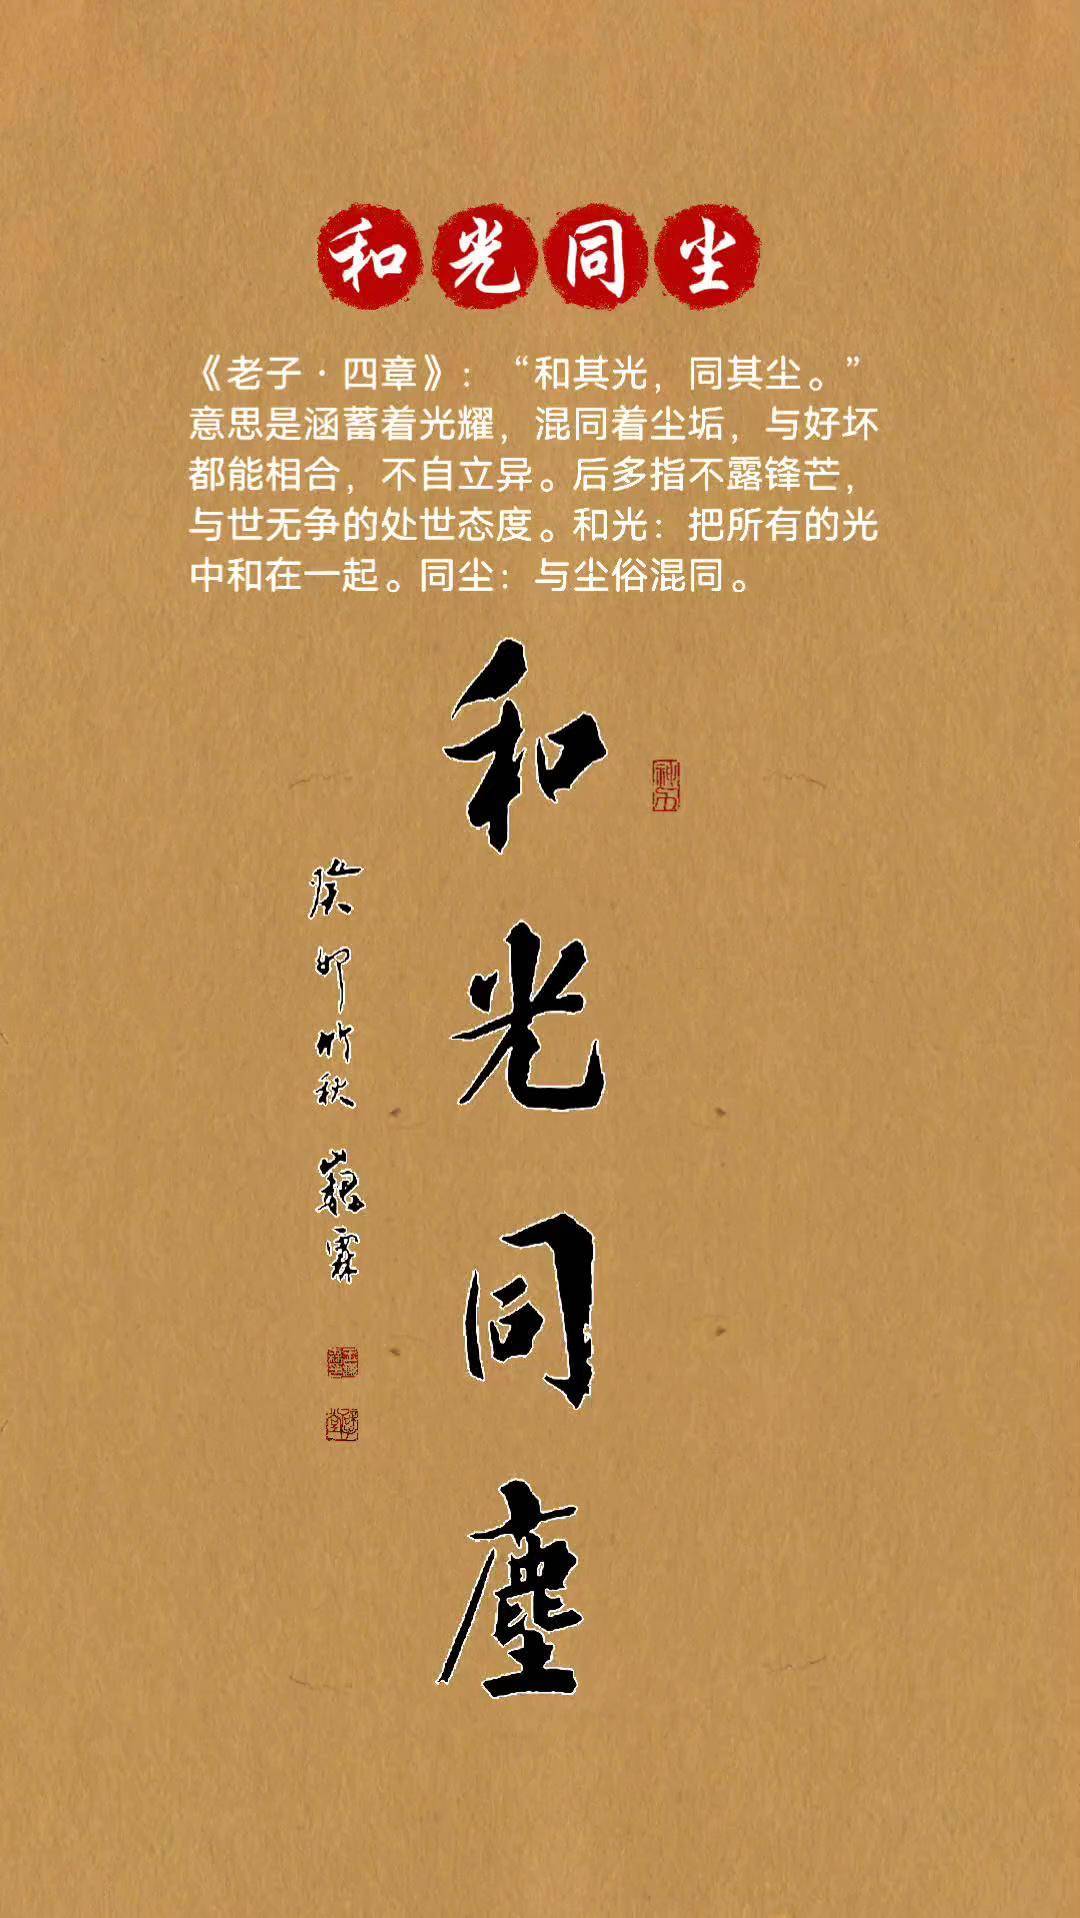 和光同尘
《老子·四章》：“和其光，同其尘。”
意思是涵蓄着光耀，混同着尘垢，与好坏
都能相合，不自立异。后多指不露锋芒，
与世无争的处世态度。和光：把所有的光
中和在一起。同尘：与尘俗混同。
和光同塵
癸卯竹秋 霖